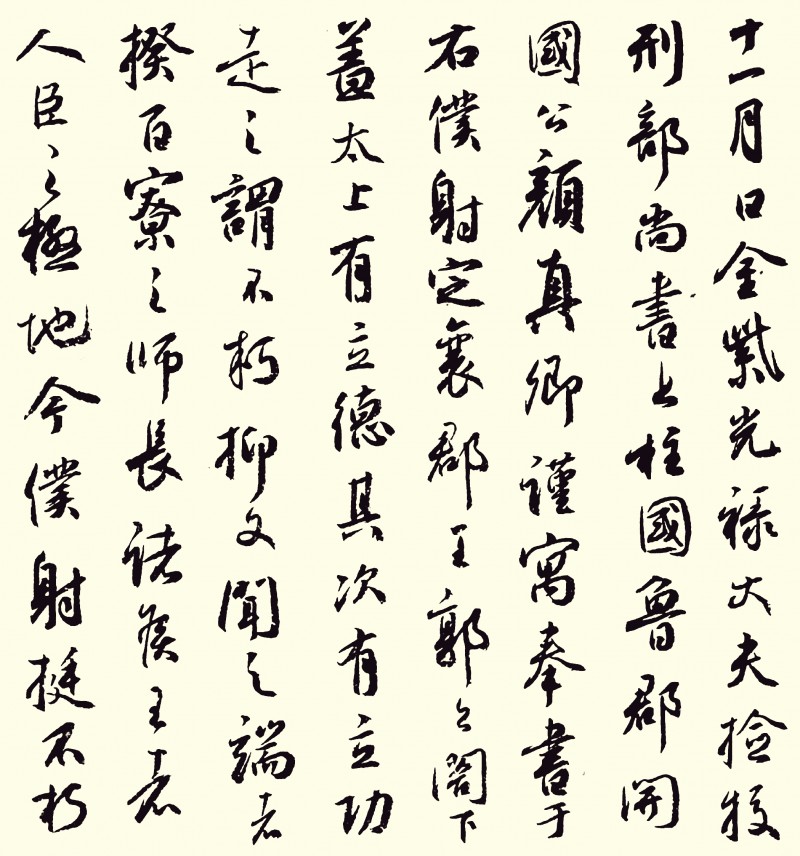 十一月日金紫光祿大夫撿挍
刑部尚書上柱國魯郡開
國公顏真卿謹寓奉書于
右僕射定襄郡王郭公閤下
蓋太上有立德其次有立功
是之謂不朽抑又聞之端者
揆百寮之師長諸侯王者
人臣之極地今僕射挺不朽